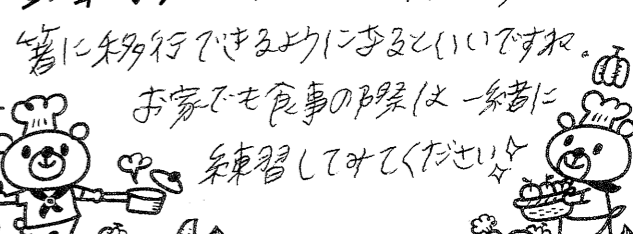 箸に移行できるようになるといいですね。
お家でも食事の際は一緒に
練習してみてください